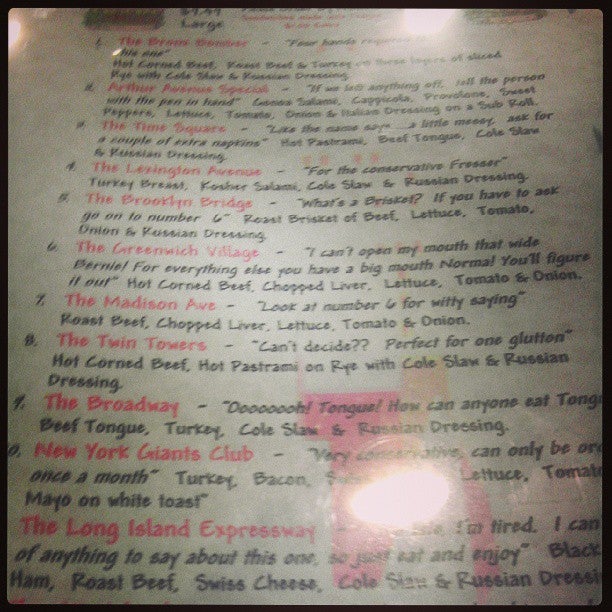 $9.99
Large
1. The Bronx Bomber - "Four hands required
this one"
Hot Corned Beef, Roast Beef & Turkey on three layers of sliced
Rye with Cole Slaw & Russian Dressing.
2. Arthur Avenue Special - "If we left anything off, tell the person
with the pen in hand" Genoa Salami, Cappicola, Provolone, Sweet
Peppers, Lettuce, Tomato, Onion & Italian Dressing on a Sub Roll.
3. The Time Square - "Like the name says...a little messy, ask for
a couple of extra napkins" Hot Pastrami, Beef Tongue, Cole Slaw
& Russian Dressing.
4. The Lexington Avenue - "For the conservative Fresser"
Turkey Breast, Kosher Salami, Cole Slaw & Russian Dressing.
5. The Brooklyn Bridge - "What's a Brisket? If you have to ask
go on to number 6" Roast Brisket of Beef, Lettuce, Tomato,
Onion & Russian Dressing
6. The Greenwich Village - "I can't open my mouth that wide
Bernie! For everything else you have a big mouth Norma! You'll figure
it out" Hot Corned Beef, Chopped Liver, Lettuce, Tomato & Onion.
7. The Madison Ave - "Look at number 6 for witty saying"
Roast Beef, Chopped Liver, Lettuce, Tomato & Onion.
8. The Twin Towers - "Can't decide?? Perfect for one glutton"
Hot Corned Beef, Hot Pastrami on Rye with Cole Slaw & Russian
Dressing.
9. The Broadway - "Oooooooh! Tongue! How can anyone eat Tong
Beef Tongue, Turkey, Cole Slaw & Russian Dressing.
0. New York Giants Club - "Very conservative, can only be or
once a month" Turkey, Bacon, Lettuce, Tomato
Mayo on white toast"
The Long Island Expressway - I'm tired. I can
of anything to say about this one, so just eat and enjoy" Black
Ham, Roast Beef, Swiss Cheese, Cole Slaw & Russian Dressi